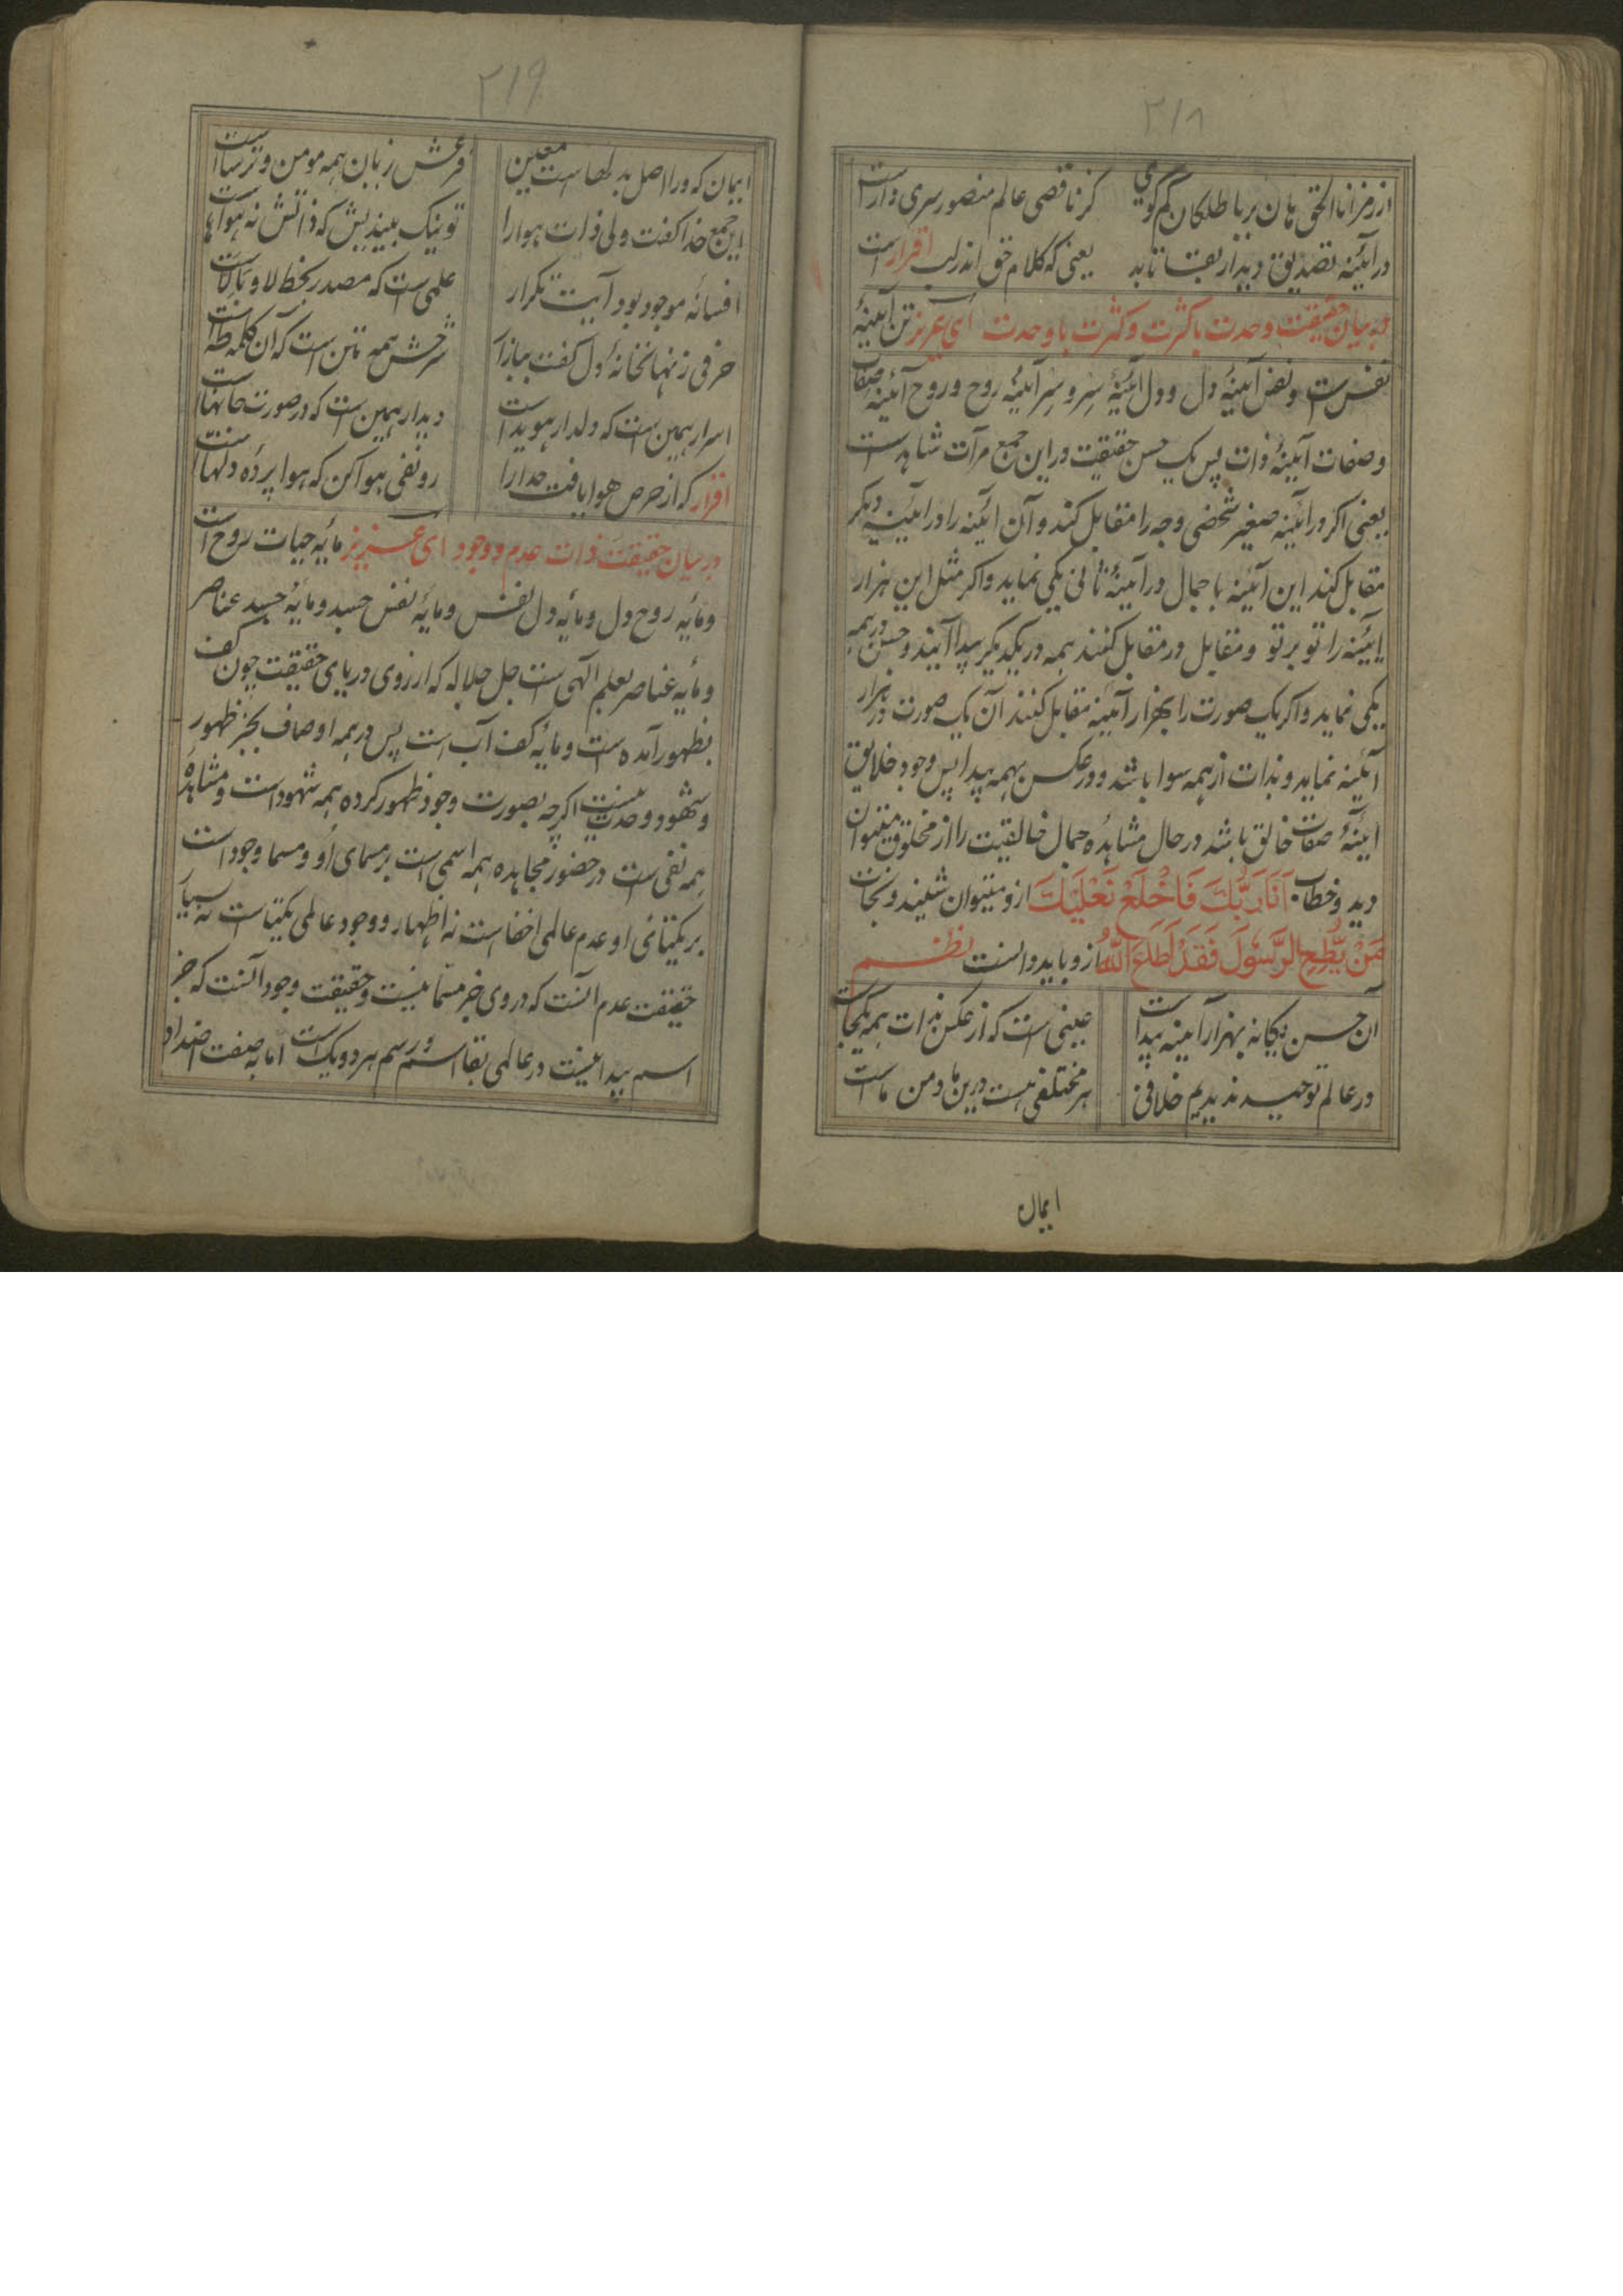 ۲۱۸
از رمز انا الحق هان بر باطلکان کم گوی کز ناقصی عالم منصور سری دار است
در آئینه تصدیق دیدار بقا تابد یعنی که کلام حق اندر لب اقرار است
در بیان حقیقت وحدت با کثرت و کثرت با وحدت ای عزیز تن آیینهٔ
نفس است و نفس آیینهٔ دل و دل آیینهٔ سِر و سِر آیینهٔ روح و روح آئینهٔ صفات
و صفات آیینهٔ ذات پس یک حسن حقیقت در این جمع مرآت شاهد است
یعنی اکر در آئینه صغیر شخصی وجه را مقابل کند و آن ائینه را در آئینه دیکر
مقابل کند این آئینه با جمال در آیینهٔ ثانی یکی نماید و اکر مثل این هزار
آیئنه را تو بر تو و مقابل در مقابل کنند همه در یکدیکر پیدا آیند و حسن در همه
یکی نماید و اکر یک صورت را بهزار آئینه مقابل کنند آن یک صورت در هزار
آئینه نماید و بذات از همه سوا باشد و در عکس بهمه پیدا پس وجود خلایق
آیینهٔ صفات خالق باشد در حال مشاهدهٔ جمال خالقیت را از مخلوق میتوان
دید و خطاب اَنَا رَبُّكَ فَاخْلَعْ نَعْلَيْكَ ازو میتوان شنید و نجات
مَنْ يُّطِعِ الرَّسُولَ فَقَدْ اَطَاعَ اللّٰهَ ازو باید دانست نظم
آن حسن یکانه بهزار آیینه پیداست عینی است که از عکس بذات همه یکجاست
در عالم توحید ندیدیم خلافی هر مختلفی هست درین ما و من ماست
ایمان
۲۱۹
ایمان که ورا اصل بدلهاست معین فرعش زبان همه مومن و ترساست
این جمع خدا گفت ولی ذات هوا را تو نیک بیندیش که ذاتش نه هواها
افسانهٔ موجود بود آیت تکرار علمی است که مصدر بخط لا و بالاست
حرفی ز نهانخانهٔ دل گفت بباز آ شرحش همه متن است که آن کلمه طه است
اسرار همین است که دلدار هویداست دیدار همین است که در صورت جانهاست
اقرار که از حرص هوا یافت خدا را رو نفی هوا کن که هوا پردهٔ دلهاست
در بیان حقیقت ذات عدم و وجود ای عزیز مایه حیات روح است
و مایه روح دل و مایه دل نفس و مایه نفس جسد و مایه جسد عناصر
و مایه عناصر بعلم الهی است جل جلاله که از روی دریای حقیقت چون کف
بظهور آمده است و مایهٔ کف آب است پس در همه اوصاف بجز ظهور
و شهود وحدت نیست اکرچه بصورت وجود ظهور کرده همه شهود است و مشاهده
همه نفی است در حضور مجاهده همه اسمی است بر مسمای او و مسما وجود است
بر یکتائی او عدم عالمی اخفا است نه اظهار و وجود عالمی یکتیاست نه بسیار
حقیقت عدم آنست که در وی جز مسما نیست و حقیقت وجود آنست که جز
اسم پیدا نیست در عالمی بقا اسم و رسم هر دو یک است اما به صفت اضداد